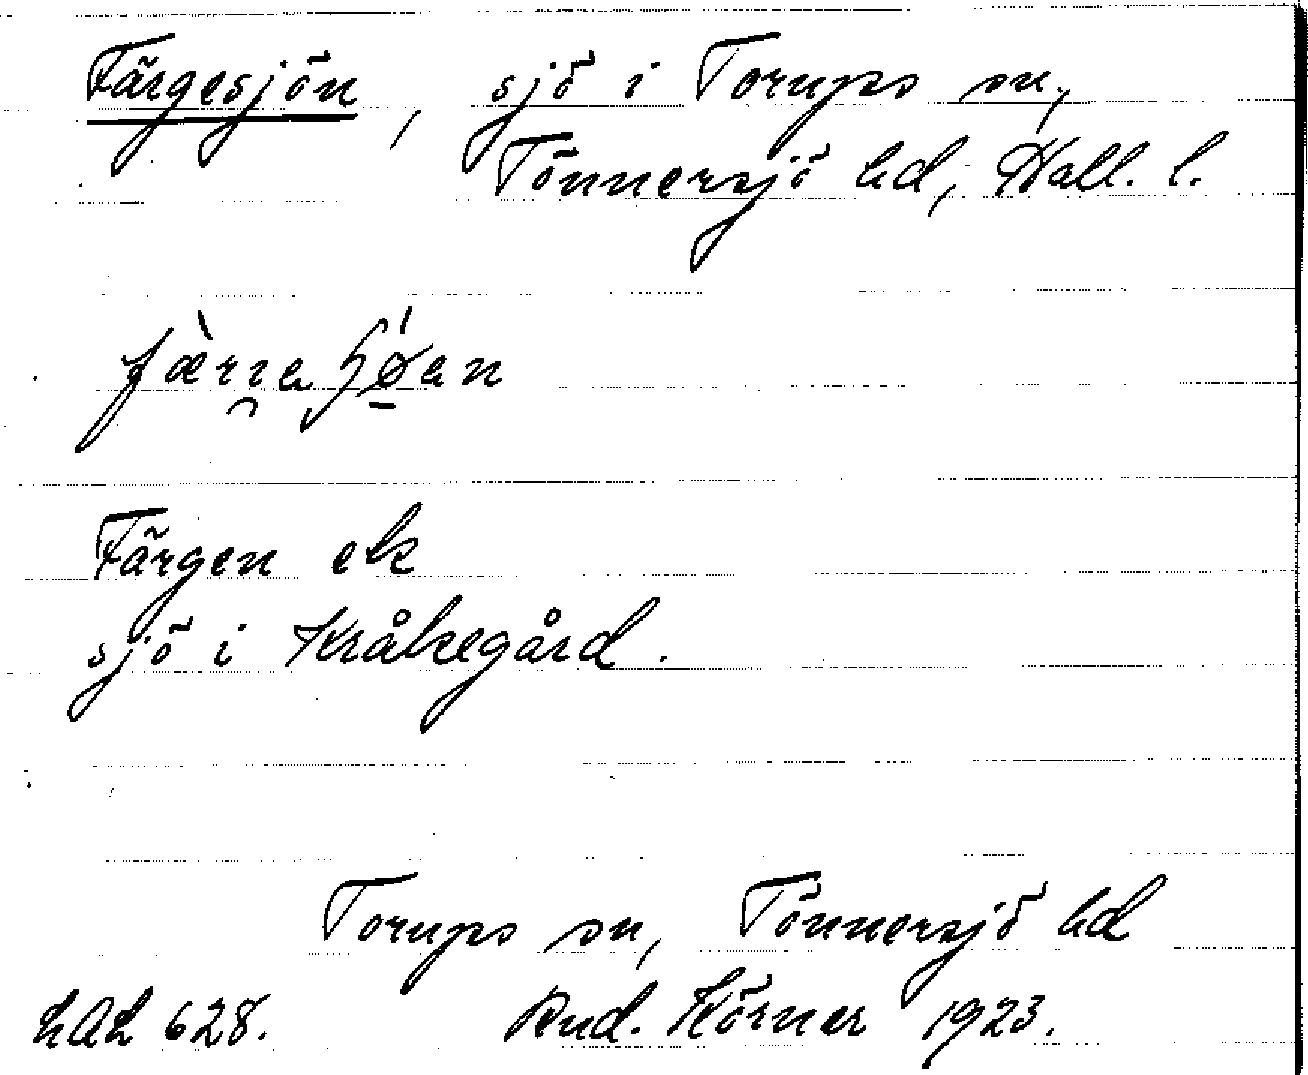 Färgesjön, sjö i Torups sn,
Tönnersjö hd, Hall. l.
Färgen ek
sjö i Kråkegård.
Torups sn, Tönnersjö hd
LAL 628. Rud. Körner 1923.